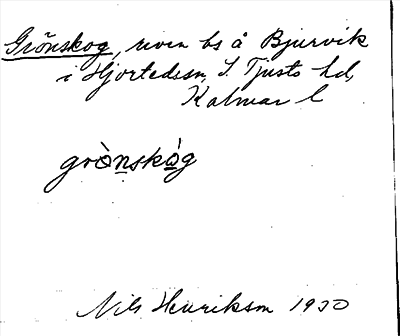 Grönskog, riven bs å Bjurvik
i Hjorteds sn, S. Tjusts hd,
Kalmar l
grònskóg
Nils Henriksson 1930